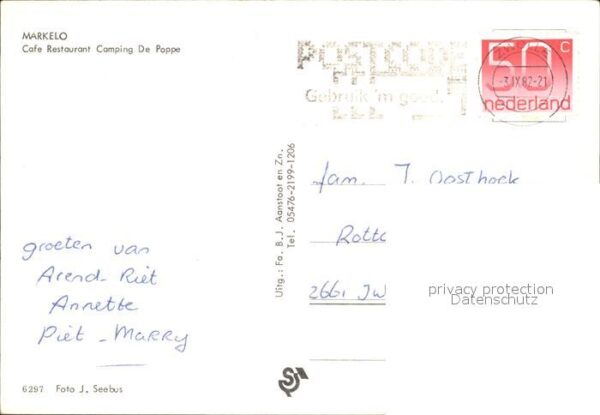 MARKELO
Cafe Restaurant Camping De Poppe
POSTCODE
Gebruik 'm goed.
50 C
nederland
-3.IX.82-21
Uitg.: Fa. B.J. Aanstoot en Zn.
Tel. 05476-2199-1206
fam. T. Oosthoek
Rotte
2661 JW
privacy protection
Datenschutz
groeten van
Arend-Riet
Annette
Piet - Marry
6297 Foto J. Seebus